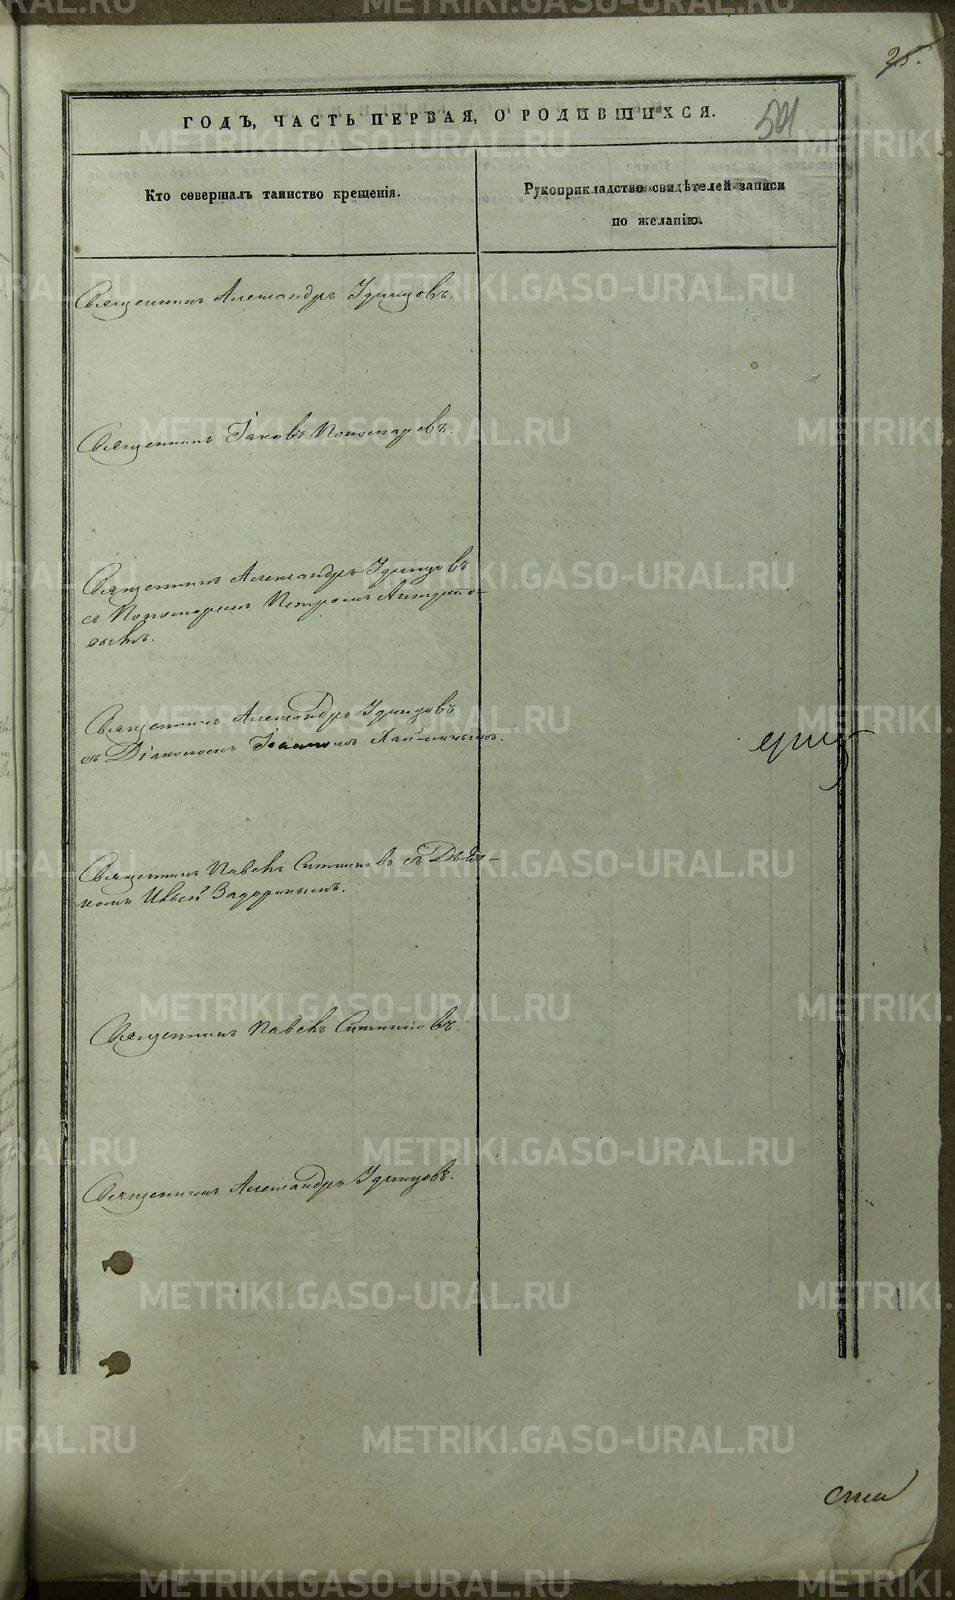 25.
ГОДЪ, ЧАСТЬ ПЕРВАЯ, О РОДИВШИХСЯ.
501
Кто совершалъ таинство крещенія.
Рукоприкладство свидѣтелей записи
по желанію.
Священникъ Александръ Удинцовъ.
Священникъ Іаковъ Пономаревъ.
Священникъ Александръ Удинцовъ
съ Пономаремъ Петромъ
Священникъ Александръ Удинцовъ
съ Діакономъ Іоанномъ
Священникъ Павелъ Ситниковъ съ Дья-
комъ
Священникъ Павелъ Ситниковъ.
Священникъ Александръ Удинцовъ.
METRIKI.GASO-URAL.RU